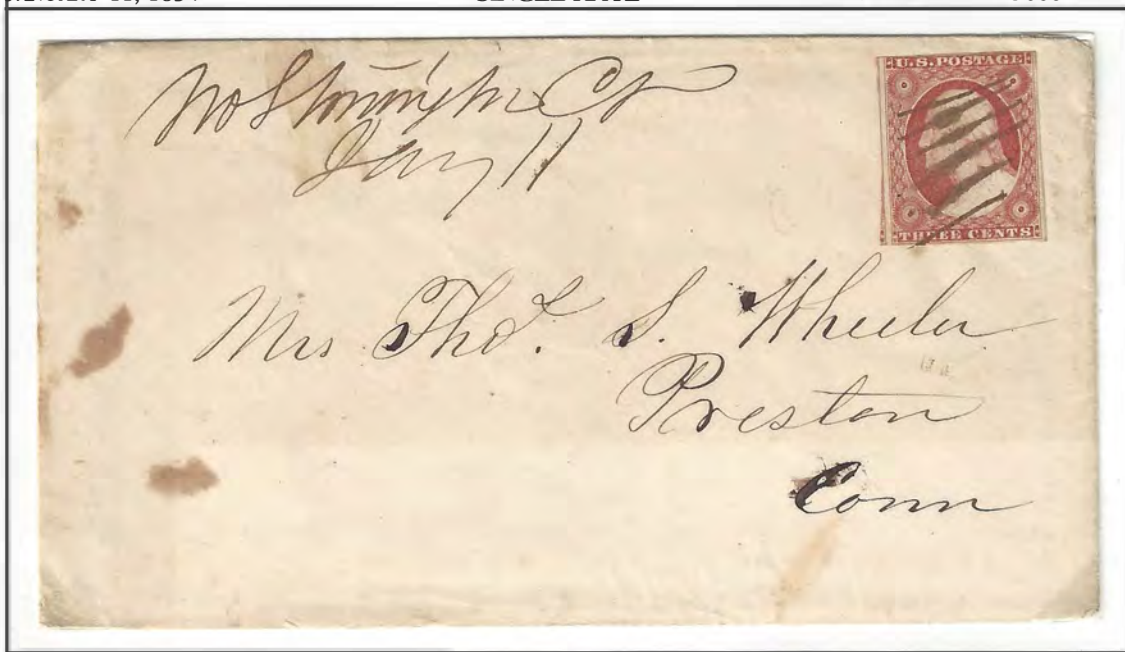 No Stonington Ct
Jany 11
U.S. POSTAGE
THREE CENTS
Mrs Thos. S. Wheeler
Preston
Conn